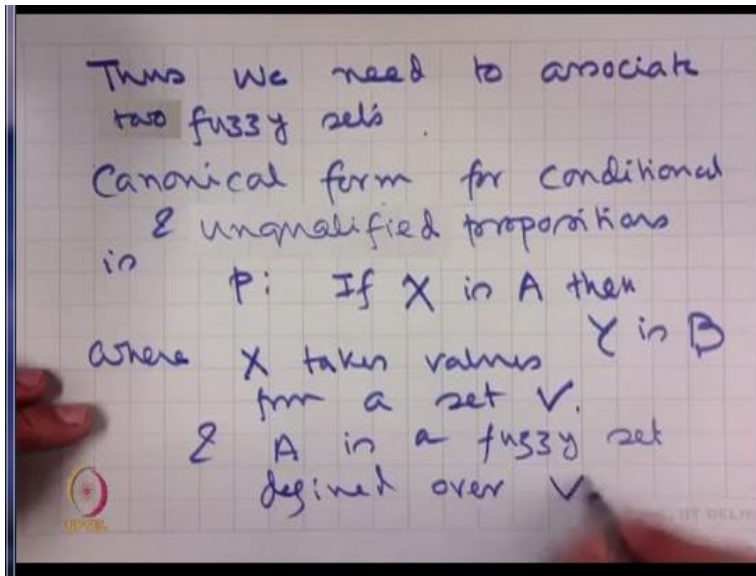 Thus we need to associate
two fuzzy sets.
Canonical form for conditional
& unqualified propositions
is
p: If X is A then
Y is B
where X takes values
from a set V.
& A is a fuzzy set
defined over V
NPTEL
IIT DELHI